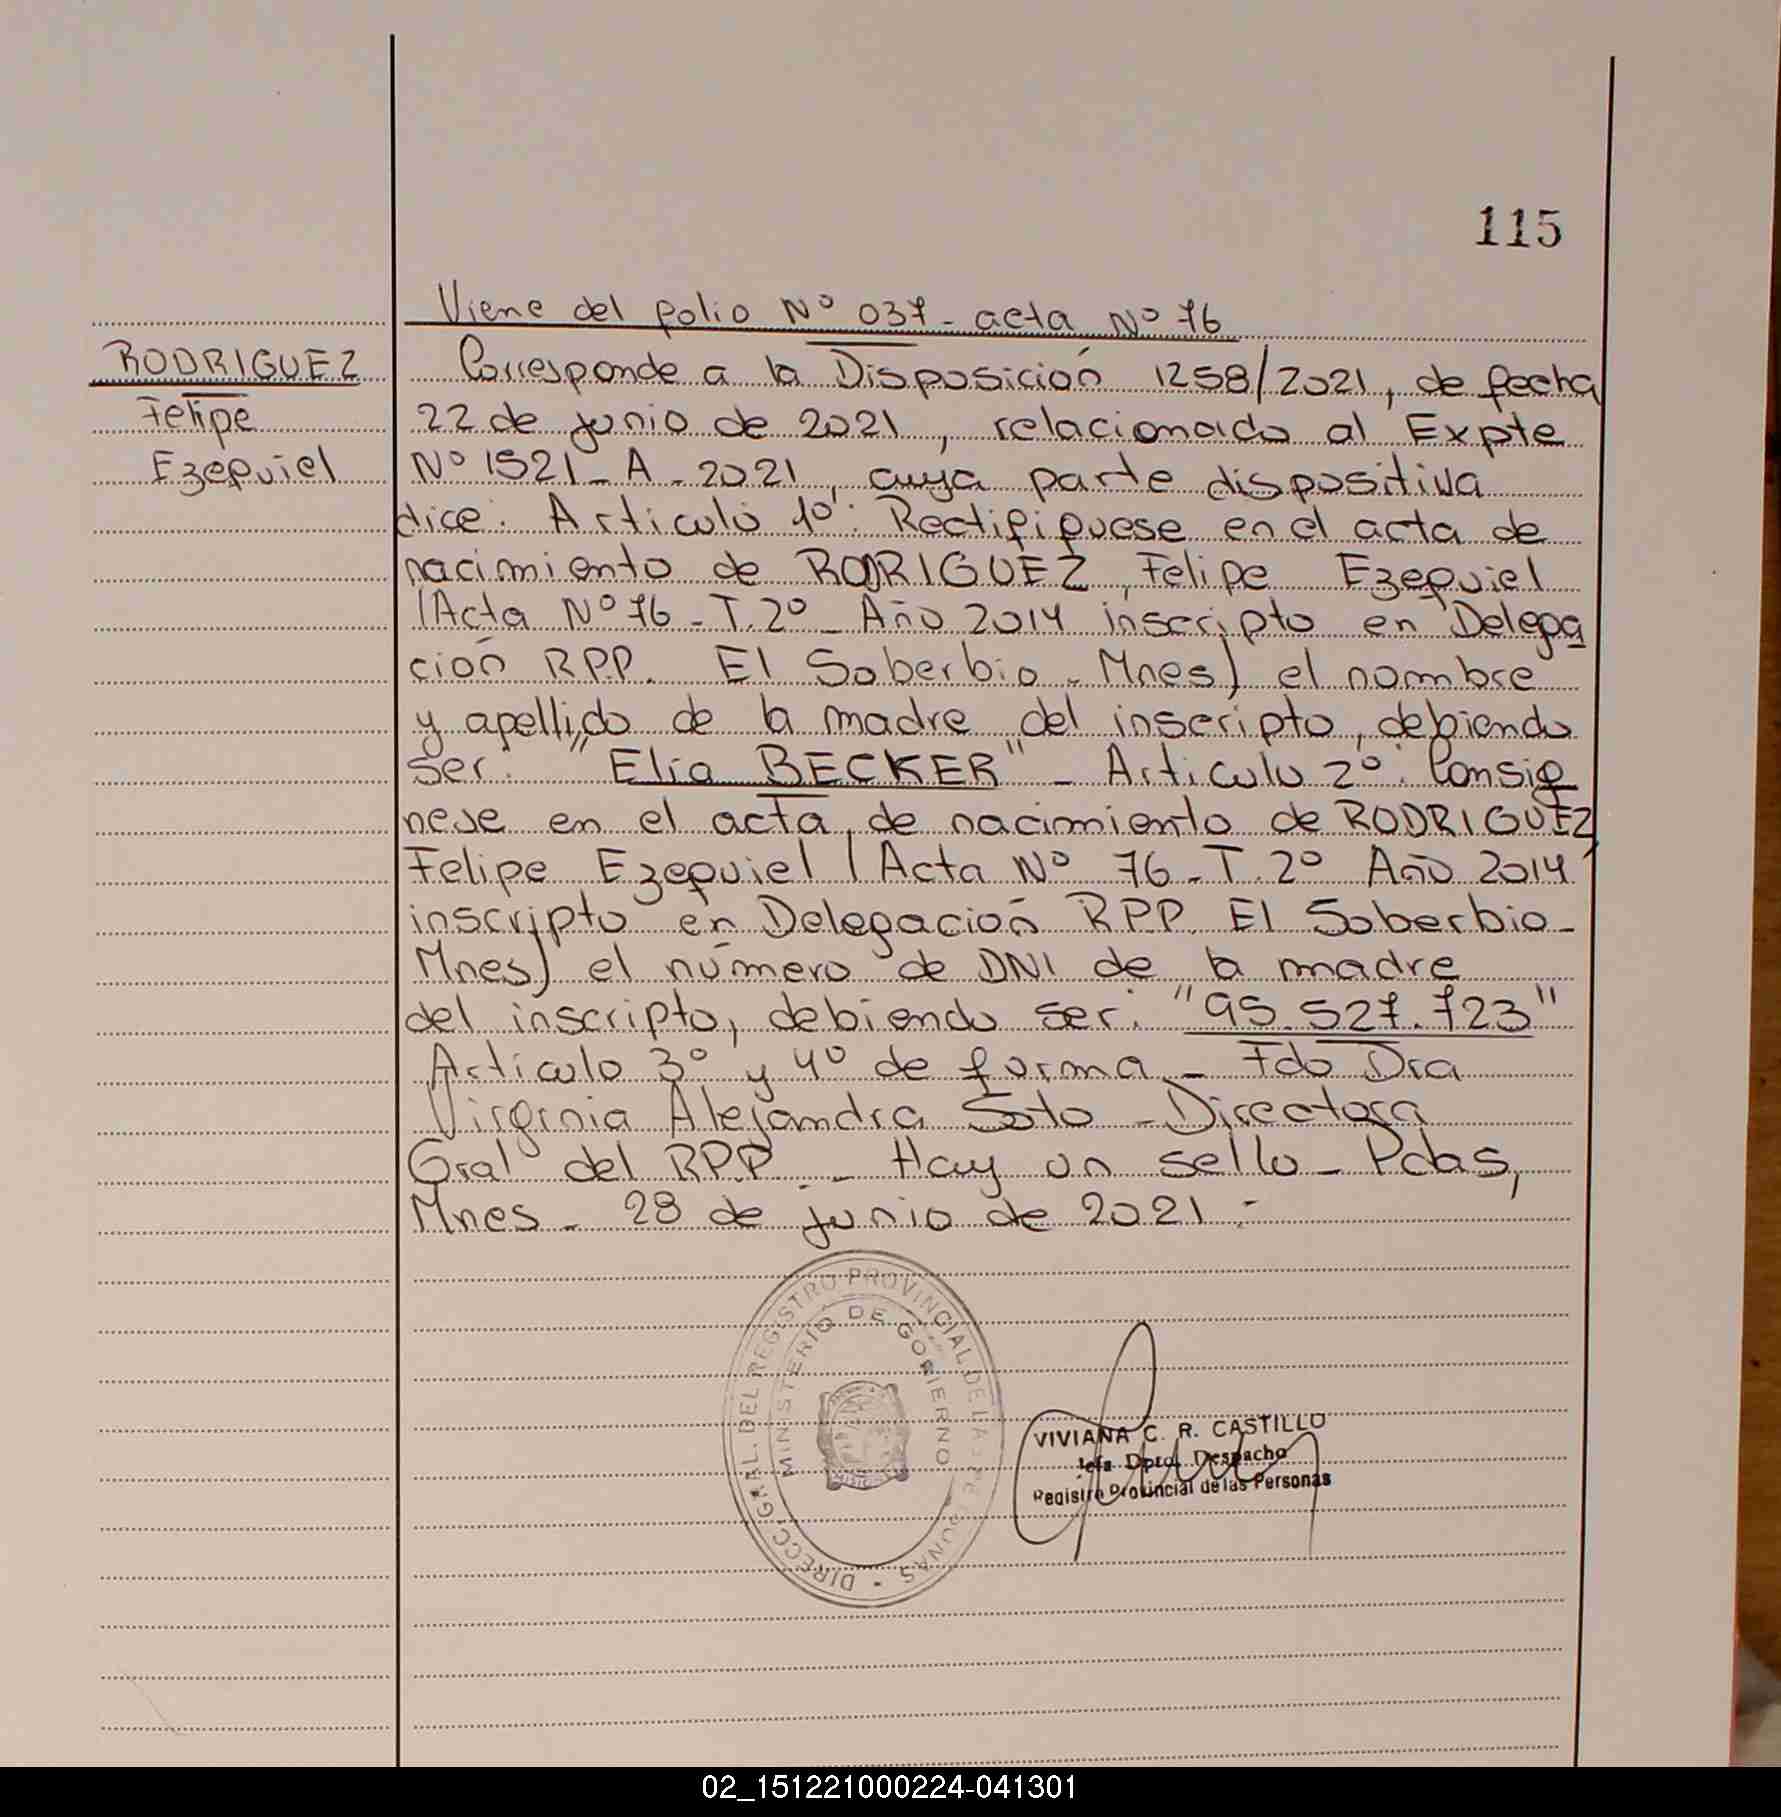 115
Viene del folio Nº 037 - acta Nº 76
RODRIGUEZ
Felipe
Ezequiel
Corresponde a la Disposición 1258/2021, de fecha
22 de junio de 2021, relacionado al Expte
Nº 1521 - A - 2021, cuya parte dispositiva
dice: Articulo 1º: Rectifiquese en el acta de
nacimiento de RODRIGUEZ, Felipe Ezequiel
(Acta Nº 76 - T. 2º - Año 2014 inscripto en Delega
ción RPP. El Soberbio - Mnes) el nombre
y apellido de la madre del inscripto, debiendo
ser: "Elia BECKER" - Articulo 2º: Consig
nese en el acta de nacimiento de RODRIGUEZ,
Felipe Ezequiel (Acta Nº 76 - T. 2º Año 2014
inscripto en Delegación RPP. El Soberbio -
Mnes) el número de DNI de la madre
del inscripto, debiendo ser: "95.527.723"
Articulo 3º y 4º de forma - Fdo Dra
Virginia Alejandra Soto - Directora
Gral del RPP. - Hay un sello - Pdas,
Mnes - 28 de junio de 2021 -
DIRECC. GRAL. DEL REGISTRO PROVINCIAL DE LAS PERSONAS
MINISTERIO DE GOBIERNO
VIVIANA C. R. CASTILLO
Jefa Dpto. Despacho
Registro Provincial de las Personas
02_151221000224-041301